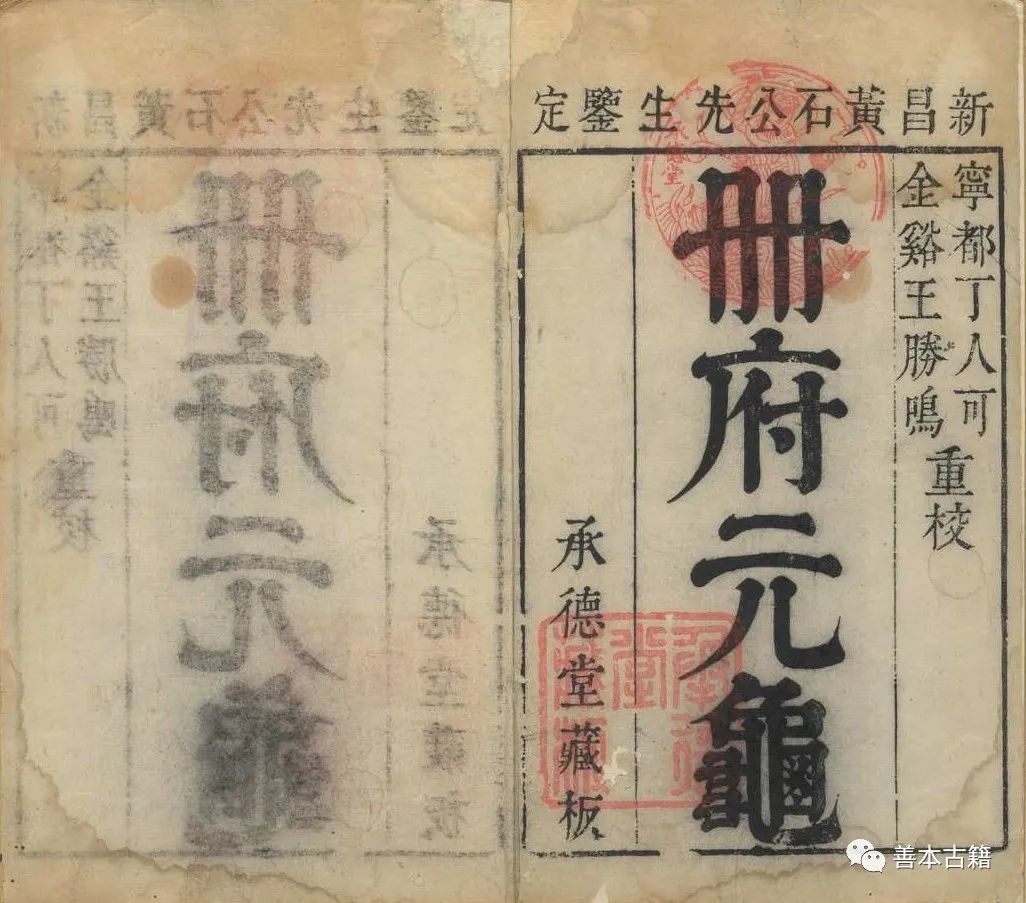 新昌黃石公先生鑒定
寧都丁人可
金谿王勝鳴
重校
冊府元龜
承德堂藏板
善本古籍